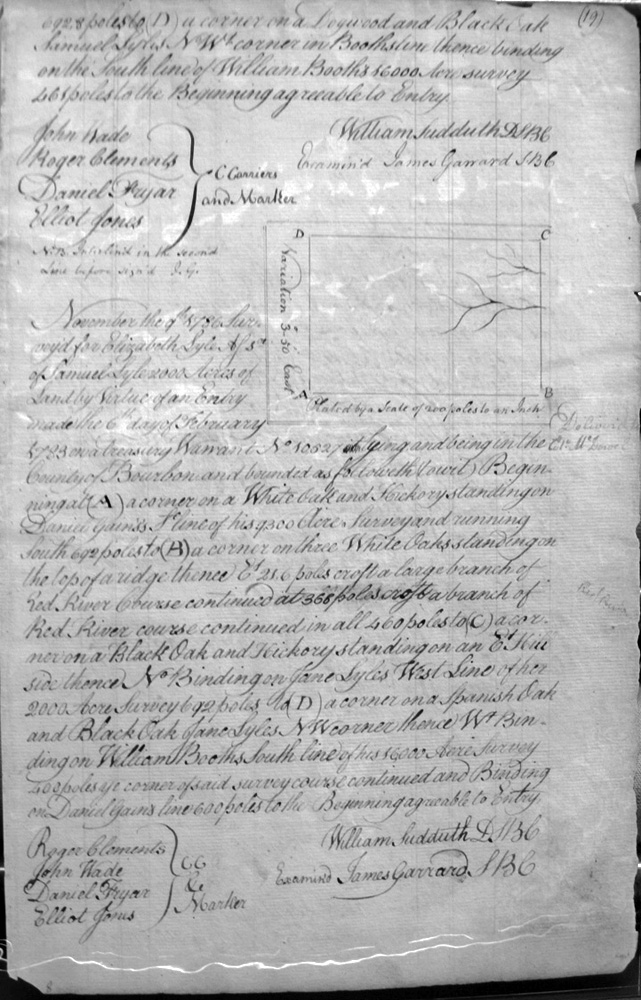 (19)
692.8 poles to (D) a corner on a Dogwood and Black Oak
Samuel Lyles N Wt corner in Booths line thence binding
on the South line of William Booths 16000 Acre survey
461 poles to the Beginning agreeable to Entry.
William Sudduth D S B C
Examin'd James Garrard S B C
John Wade
Roger Clements
Daniel Fryar
Elliot Jones
C Carriers
and Marker
in the second
Line before sign'd
D
C
Variation 3.50 East
A
B
Plated by a Scale of 200 poles to an Inch
November the 9th 1786 Sur-
veyd for Elizabeth Lyle
of Samuel Lyle 2000 Acres of
Land by Virtue of an Entry
made the 6th day of February
1783 on a treasury Warrant No. lying and being in the
County of Bourbon and bounded as followeth (towit) Begin-
ning at (A) a corner on a White Oak and Hickory standing on
Daniel Gains's line of his 9300 Acre Survey and running
South 692 poles to (B) a corner on three White Oaks standing on
the top of a ridge thence Et 216 poles crost a large branch of
Red River Course continued at 368 poles crost a branch of
Red River course continued in all 460 poles to (C) a cor-
ner on a Black Oak and Hickory standing on an Et Hill
side thence No Binding on Jane Lyles West Line of her
2000 Acre Survey 692 poles to (D) a corner on a Spanish Oak
and Black Oak Jane Lyles N W corner thence Wt Bin-
ding on William Booths South line of his 16000 Acre Survey
400 poles ye corner of said survey course continued and Binding
on Daniel Gains line 600 poles to the Beginning agreeable to Entry.
Deliver'd
Red River
William Sudduth D S B C
Examind James Garrard S B C
Roger Clements
John Wade
Daniel Fryar
Elliot Jones
CC
&
Marker